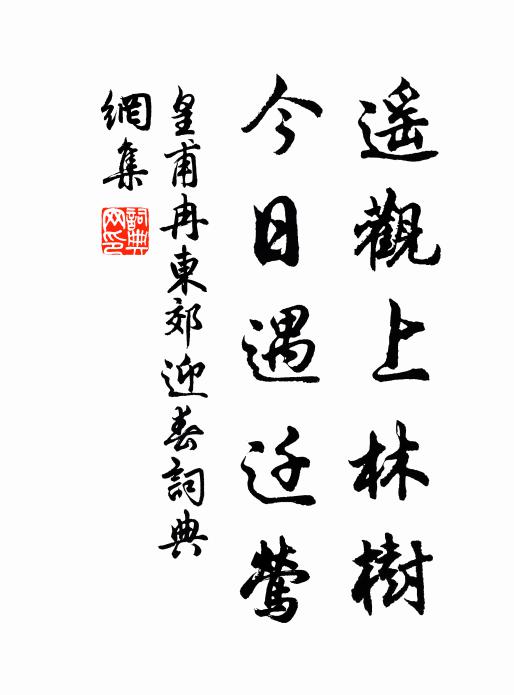 遥觀上林樹
今日遇迁鶯
皇甫冉東郊迎春詞典
網集
詞典网印